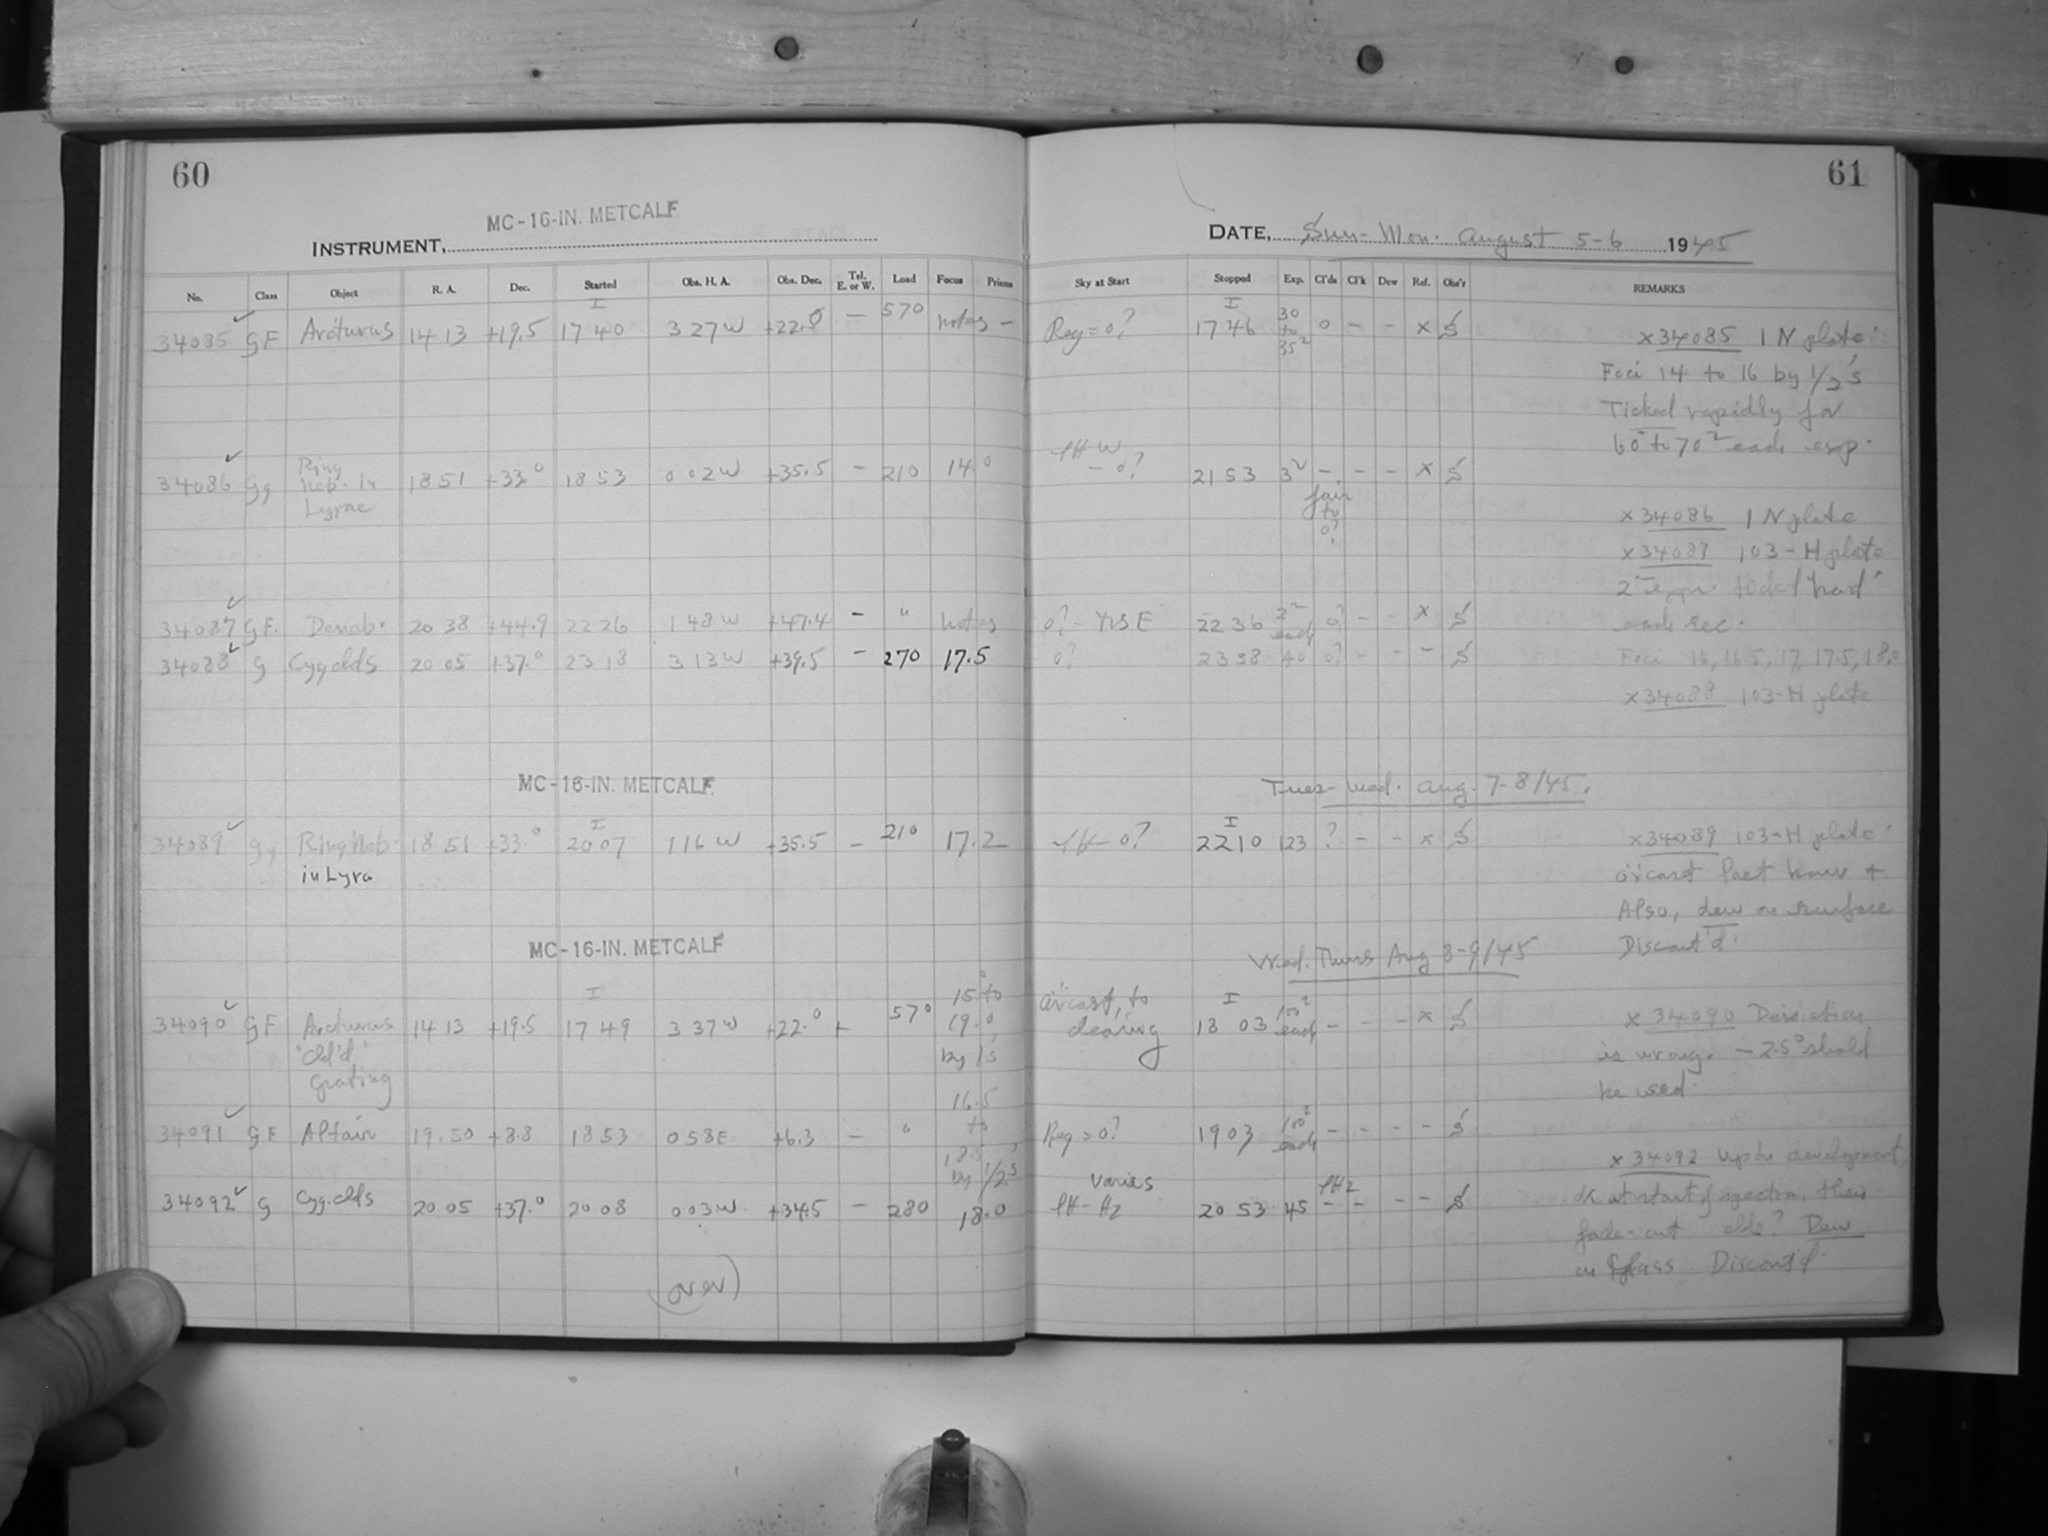 60
MC-16-IN. METCALF
INSTRUMENT,
No. Class Object R. A. Dec. Started Obs. H. A. Obs. Dec. Tel. E. or W. Load Focus Prisms
I
34085 GF Arcturus 14 13 +19.5 17 40 3 27 W +22.0 — 570 notes —
34086 Gg Ring Neb. in Lyrae 18 51 +33.0 18 53 0 02 W +35.5 — 210 14.0
34087 GF. Deneb. 20 38 +44.9 22 26 1 48 W +47.4 — " notes
34088 G Cyg clds 20 05 +37.0 23 18 3 13 W +39.5 — 270 17.5
MC-16-IN. METCALF
I
34089 Gg Ring Neb. in Lyra 18 51 +33.0 20 07 1 16 W +35.5 — 210 17.2
MC-16-IN. METCALF
I
34090 GF Arcturus "Cld'd" Grating 14 13 +19.5 17 49 3 37 W +22.0 + 570 15.0 to 19.0 by 1's
34091 GF Altair 19.50 +8.8 18 53 0 58 E +6.3 — " 16.5 to 18.5 by 1/2's
34092 G Cyg. clds 20 05 +37.0 20 08 0 03 W +34.5 — 280 18.0
(over)
61
DATE, Sun-Mon. August 5-6 1945
Sky at Start Stopped Exp. Cl'ds Cl'k Dew Ref. Obs'r REMARKS
I
Reg = 0? 17 46 30 to 35 0 - - x
x 34085 1 N plate
Foci 14 to 16 by 1/2's
Ticked rapidly for
60 to 70 each exp.
W - 0? 21 53 3 - - - x
fair to 0?
x 34086 1 N plate
x 34087 103-H plate
2 expr. ticked hard
each sec.
0? - E 22 36 2 each 0? - - x
0? 23 58 40 0? - - -
Foci 16, 16.5, 17, 17.5, 18.0
x 34088 103-H plate
Tues-Wed. Aug. 7-8/45.
I
- 0? 22 10 123 ? - - x
x 34089 103-H plate
o'cast last hour +
Also, dew on surface
Discont'd.
Wed. Thurs Aug 8-9/45
I
o'cast, to clearing 18 03 100 each - - - x
x 34090 Deviation
is wrong. -2.5° should
be used.
Reg = 0? 19 03 100 each - - - -
varies
- Hz 20 53 45 - - - -
x 34092 Upon development,
ok at start of spectra, then
fade-out clds? Dew
on glass. Discont'd.